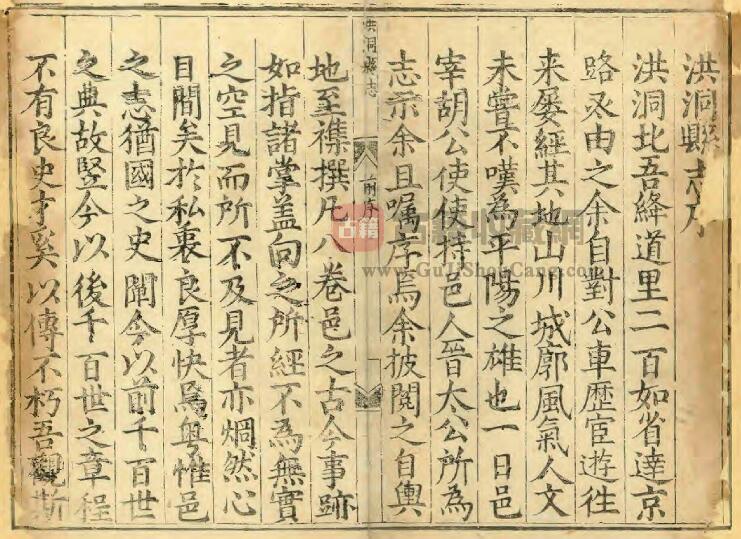 洪洞縣志序
洪洞北吾絳道里二百如省達京
路亟由之余自對公車歷宦遊徃
来屡經其地山川城郭風氣人文
未嘗不嘆為平陽之雄也一日邑
宰胡公使使持邑人晉太公所為
志示余且囑序焉余披閱之自輿
洪洞縣志
前序
地至襍撰凡八卷邑之古今事跡
如指諸掌盖向之所經不為無實
之空見而所不及見者亦烱然心
目間矣於私衷良厚快焉粤惟邑
之志猶國之史闡今以前千百世
之典故豎今以後千百世之章程
不有良史才奚以傳不朽吾觀斯
古籍
古籍收藏網
www.GuJiShouCang.com